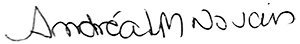 Andréa M Novais